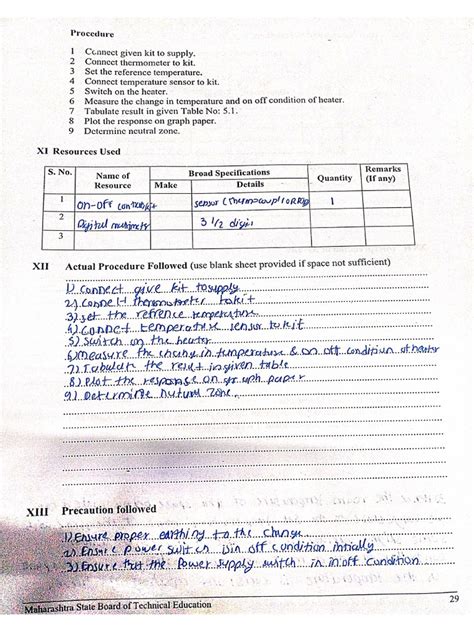 Procedure
1 Connect given kit to supply.
2 Connect thermometer to kit.
3 Set the reference temperature.
4 Connect temperature sensor to kit.
5 Switch on the heater.
6 Measure the change in temperature and on off condition of heater.
7 Tabulate result in given Table No: 5.1.
8 Plot the response on graph paper.
9 Determine neutral zone.
XI Resources Used
S. No. Name of Resource Broad Specifications Quantity Remarks (If any)
Make Details
1 on-off sensor (thermocouple/ORRTD) 1
2 Digital 3 1/2 digit
3
XII Actual Procedure Followed (use blank sheet provided if space not sufficient)
1) Connect give kit to supply
2) Connect to kit
3) set the reference temperature
4) Connect temperature sensor to kit
5) switch on the heater
6) measure the change in temperature & on off condition of heater
7) Tabulate the result in given table
8) Plot the response on graph paper
9) Determine nutural Zone
XIII Precaution followed
1) Ensure proper earthing to the change
2) Ensure power switch is in off condition initially
3) Ensure that the Power supply switch in in off condition
Maharashtra State Board of Technical Education 29